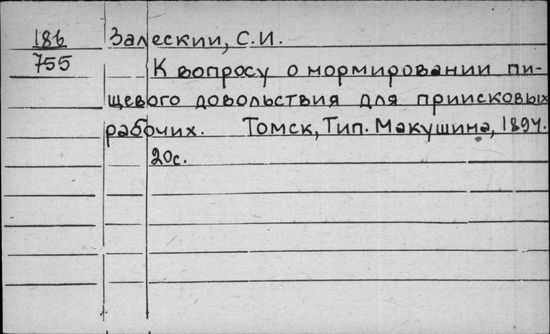 186 Залескии, С.И.
755 К вопросу о нормировании пи-
щевого довольствия для приисковых
рабочих. Томск, Тип. Макушина, 1894.
20с.